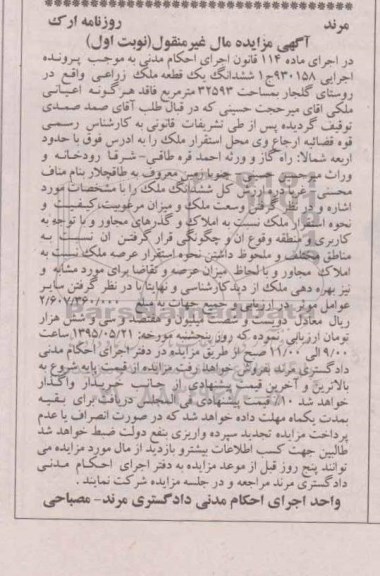 مرند
روزنامه ارک
آگهی مزایده مال غیرمنقول(نوبت اول)
در اجرای ماده ۱۱۴ قانون اجرای احکام مدنی به موجب پرونده
اجرایی ۹۳۰۱۵۸ج۱ ششدانگ یک قطعه ملک زراعی واقع در
روستای گلجار بمساحت ۳۲۵۹۳ مترمربع فاقد هرگونه اعیانی
ملکی آقای میرحجت حسینی که در قبال طلب آقای صمد صمدی
توقیف گردیده پس از طی تشریفات قانونی به کارشناس رسمی
قوه قضائیه ارجاع وی محل استقرار ملک را به ادرس فوق با حدود
اربعه شمالا: راه گاز و ورثه احمد قره طاقی- شرقا رودخانه و
وراث میرحسن حسینی- جنوبا زمین معروف به طاقچلار بنام مناف
محسنی- غربا دره ارزش کل ششدانگ ملک را با مشخصات مورد
اشاره و در نظر گرفتن وسعت ملک و میزان مرغوبیت، کیفیت و
نحوه استقرار ملک نسبت به املاک و گذرهای مجاور و با توجه به
کاربری و منطقه وقوع ان و چگونگی قرار گرفتن ان نسبت به
مناطق مختلف و ملحوظ داشتن نحوه استقرار عرصه ملک نسبت به
املاک مجاور و با لحاظ میزان عرصه و تقاضا برای مورد مشابه و
نیز بهره دهی ملک از دید کارشناسی و نهایتا با در نظر گرفتن سایر
عوامل موثر در ارزیابی و جمیع جهات به مبلغ ۲/۶۰۷/۳۶۰/۰۰۰
ریال معادل دویست و شصت میلیون و هفتصد و سی و شش هزار
تومان ارزیابی نموده که روز پنجشنبه مورخه: ۱۳۹۵/۰۵/۲۱ ساعت
۹/۰۰ الی ۱۱/۰۰ صبح از طریق مزایده در دفتر اجرای احکام مدنی
دادگستری مرند بفروش خواهد رفت مزایده از قیمت پایه شروع به
بالاترین و آخرین قیمت پیشنهادی از جانب خریدار واگذار
خواهد شد ۱۰٪ قیمت پیشنهادی فی المجلس دریافت برای بقیه
بمدت یکماه مهلت داده خواهد شد که در صورت انصراف یا عدم
پرداخت مزایده تجدید سپرده واریزی بنفع دولت ضبط خواهد شد
طالبین جهت کسب اطلاعات بیشتر و بازدید از مال مورد مزایده می
توانند پنج روز قبل از موعد مزایده به دفتر اجرای احکام مدنی
دادگستری مرند مراجعه و در جلسه مزایده شرکت نمایند.
واحد اجرای احکام مدنی دادگستری مرند- مصباحی